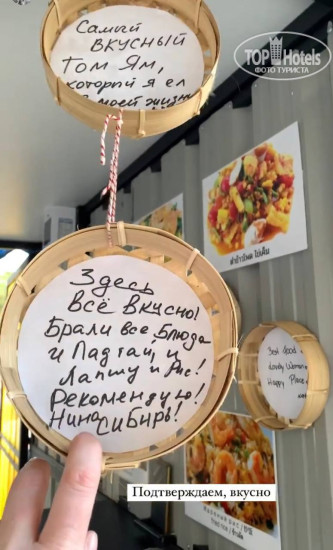 Самый
вкусный
Том Ям,
который я ел
в моей жизни
TOP Hotels
ФОТО ТУРИСТА
Здесь
всё вкусно!
Брали все блюда
и Пад тай, и
лапшу и рис!
Рекомендую!
Нина Сибирь!
Best food
Lovely Woman
Happy Place
Подтверждаем, вкусно